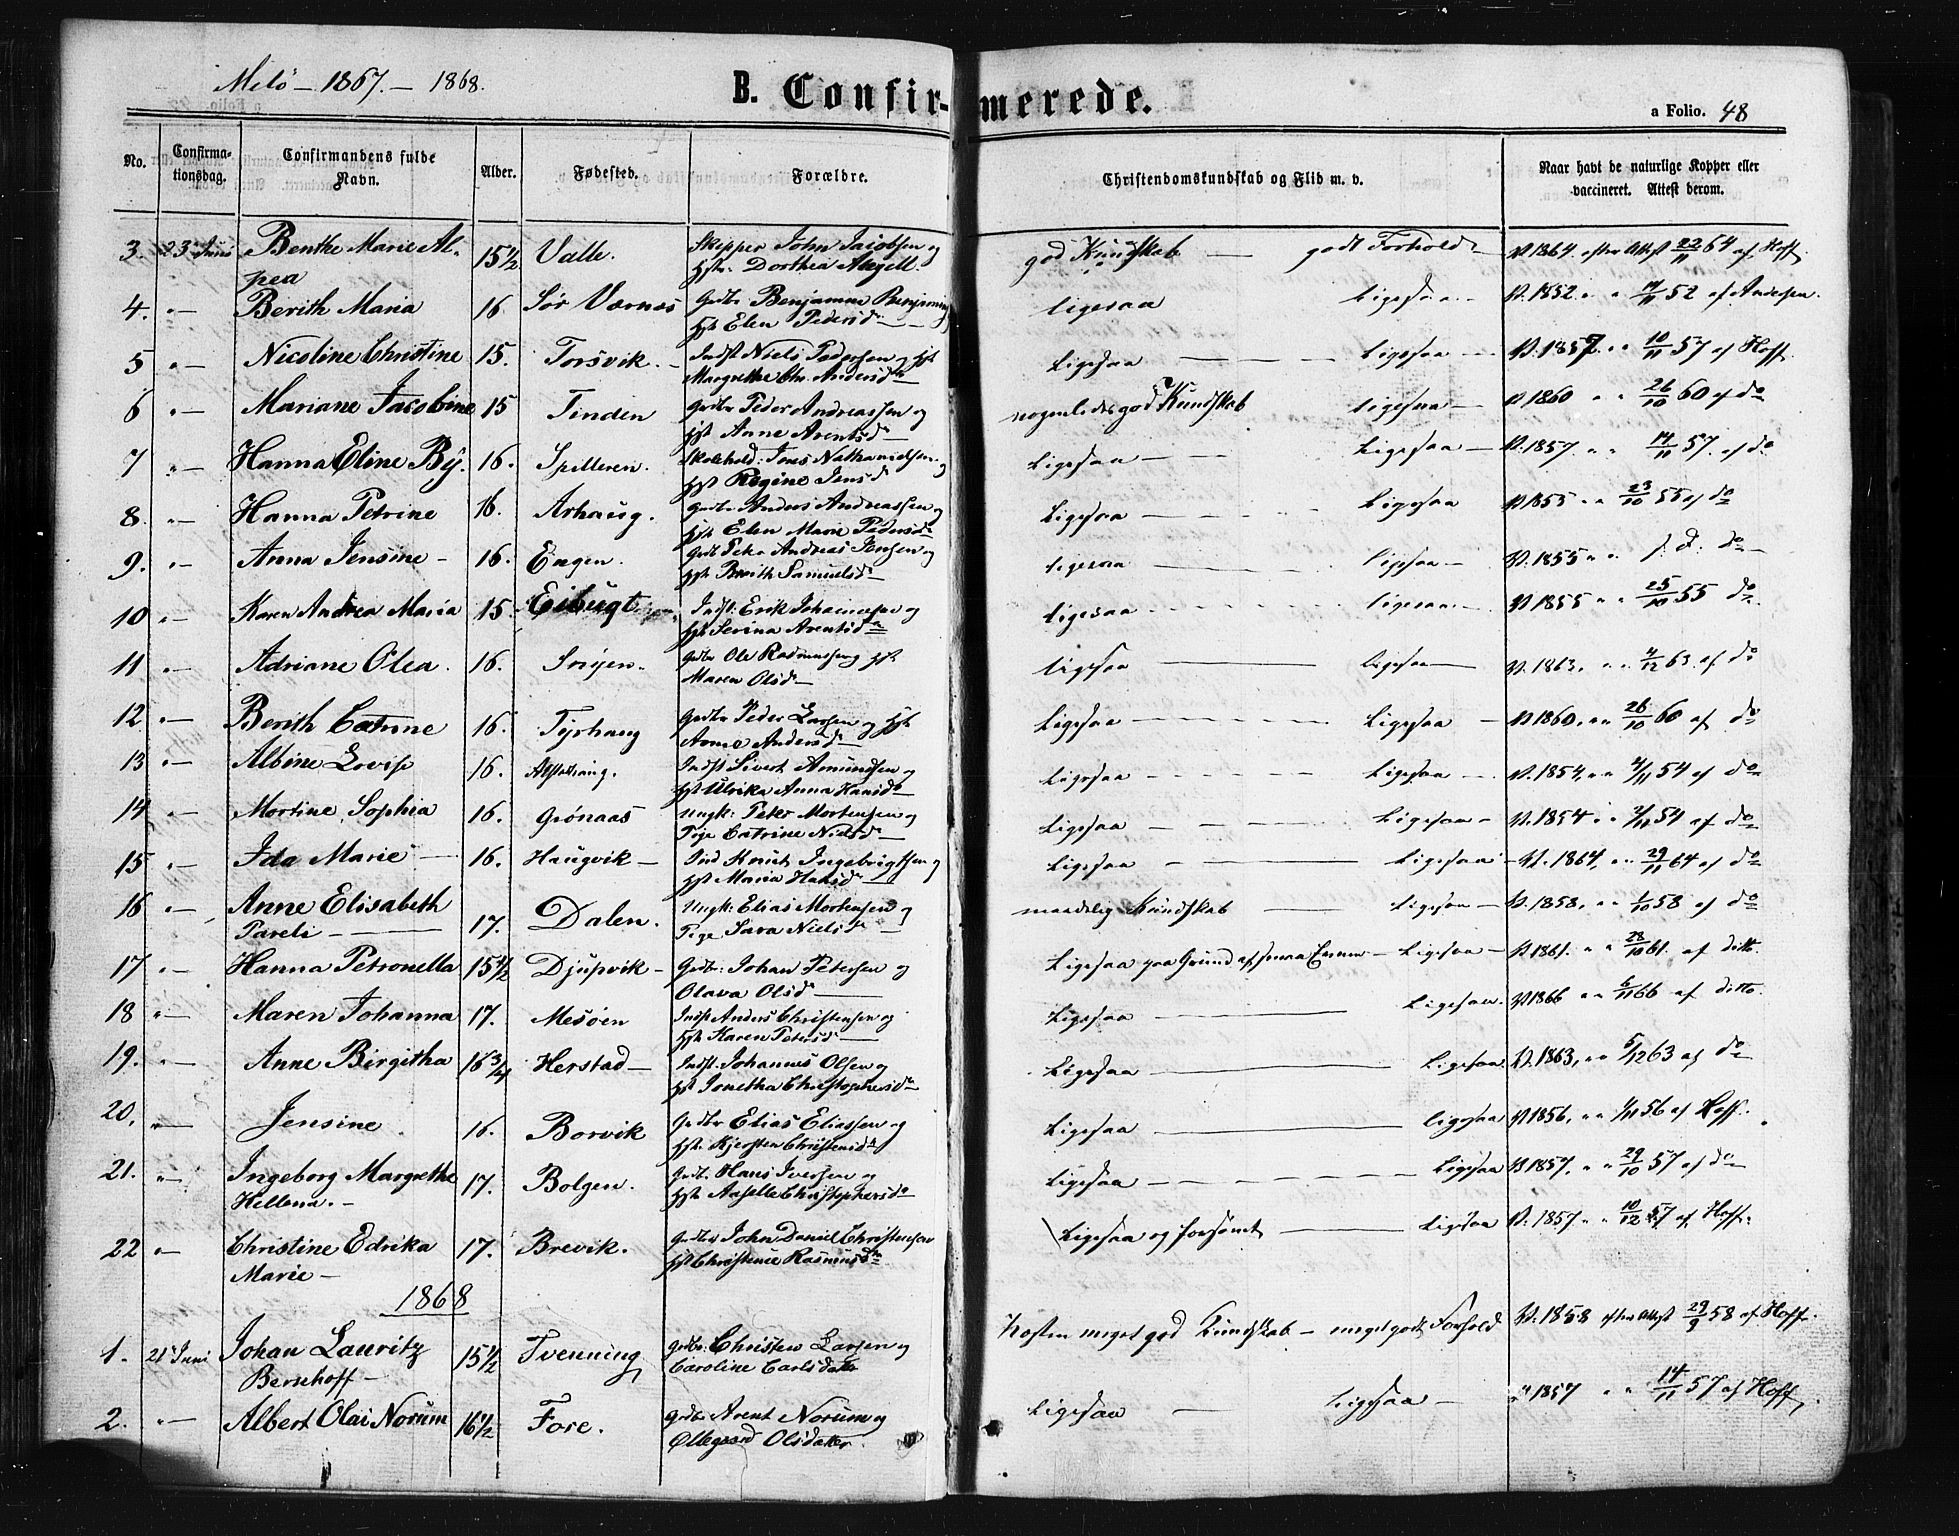 Melö – 1867. – 1868.
B. Confirmerede.
a Folio. 48
No. Confirmationsdag. Confirmandens fulde Navn. Alder. Fødested. Forældre. Christendomskundskab og Flid m. v. Naar havt de naturlige Kopper eller vaccineret. Attest derom.
3. 23 Juni Benthe Marie Al- 15½ Valle. Skipper John Jacobsen og god Kundskab — godt Forhold V. 1864 efter Attest 22/11 64 af Hoff
pea Hstr. Dorthea Angell
4. "— Berith Maria 16 Sør Værnæs Grdbr Benjamin ligesaa Ligesaa V. 1852 " " 52 af Andersen.
Hst Elen Pedersd
5 "— Nicoline Christine 15. Torsvik. Indst Niels Pedersen og Hst Ligesaa — — — Ligesaa V. 1857 " " 10/11 57 af Hoff
Margrethe Chr. Andersd
6 "— Mariane Jacobine 15 Tinden Grdbr Peder Andreassen og nogenledes god Kundskab ligesaa V 1860 " " 26/10 60 af do
Hst Anne Arentsd
7 "— Hanna Eline By. 16. Spilleren. Skolehold: Jens Nathanielsen og Ligesaa — — Ligesaa V. 1857. " " 14/11 57. af do
Hst Regine Jensd
8. "— Hanna Petrine 16. Arhaug. Grdbr Anders Andreassen og Ligesaa — — — Ligesaa V 1855 " " 23/10 55 af do
Hst Elen Marie Pedersd
9. "— Anna Jensine – 16. Engen. Grdb Peter Andreas Jensen og ligesaa — — — ligesaa V. 1855 " " do
Hst Berith Samuelsd
10 "— Karen Andrea Maria 15. Eibugt Indst: Erik Johannesen og Ligesaa ligesaa V 1855 " " 25/10 55 do
Hst Serina Arentsd
11 "— Adriane Olea. 16. Grdbr Ole Rasmussen og Hst ligesaa — ligesaa V. 1863. " " 4/12 63. af do
Maren Olsd
12. "— Berith Catrine 16. Tyrhaug Grdbr Peder Larsen og Hst Ligesaa — — — Ligesaa — V 1860. " " 26/10 60 af do
Anne Andersd
13 "— Albine Lovise 16. Indst Sivert Amundsen og Ligesaa — — — Ligesaa — V. 1854. " " 4/11 54 af do
Hst Ulrika Anna Hansd
14 "— Mortine Sophia 16. Grönaas Ungk: Peter Mortensen og Ligesaa — — — Ligesaa – V. 1854 " " 54 af do
Pige Catrine Nielsd
15 "— Ida Marie — 16. Haugvik — Ind Knut Ingebrigtsen og Ligesaa — — — Ligesaa V. 1864. " " 29/11 64 af do
Hst Maria Hansd
16 "— Anne Elisabeth 17. Dalen. Ungk: Elias Mortensen og maadelig Kundskab — Ligesaa — V. 1858. " " 1/10 58 af do
Pareli — Pige Sara Nielsd
17 "— Hanna Petronella 15½ Djupvik – Grdbr: Johan Petersen og Ligesaa paa Grund af smaa Evner – Ligesaa — V 1861. " " 28/10 61. af ditto.
Olava Olsd
18 "— Maren Johanna 17. Mesöen Indst Anders Christensen og Ligesaa — Ligesaa. V 1866 " " 6/11 66 af ditto.
Hst Karen Petersd
19. "— Anne Birgitha 16¾ Herstad — Indst. Johannes Olsen og Ligesaa — Ligesaa V. 1863, " " 5/12 63 af do
Hst Jonetha Christophersd
20. "— Jensine 16. Borvik Grdbr Elias Eliassen og Ligesaa — ligesaa V 1856, " " 1/11 56 af Hoff.
Hst. Kjersten Christensd
21. "— Ingeborg Margrethe 17. Bolgen. Grdb. Hans Iversen og Ligesaa — — — Ligesaa V 1857, " " 29/10 57 af do
Hellena. – Hst Aaselle Christophersd
22 "— Christine Edrika 17. Brevik. Grdbr John Daniel Christensen Ligesaa og forsömt — Ligesaa V. 1857 " " 10/12 57 af Hoff.
Marie – Hst Christense Rasmusd
1868
1. 21 Juni Johan Lauritz 15½ Tvenning Grdbr: Christen Larsen og Næsten meget god Kundskab – meget godt Forhold V. 1858 efter Attest 29/9 58 af Hoff
Bernhoff – Caroline Carlsdatter
2. "— Albert Olai Norum 16½ Fore. Grdbr Arent Norum og Ligesaa — Ligesaa — " 1857 " " 14/11 57 af Hoff.
Ollegaard Olsdatter.